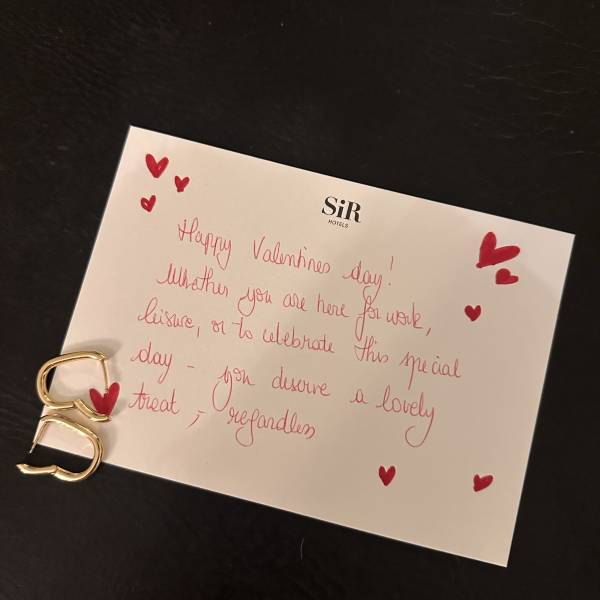 SiR
HOTELS
Happy Valentines day!
Whether you are here for work,
leisure, or to celebrate this special
day - you deserve a lovely
treat ; regardless